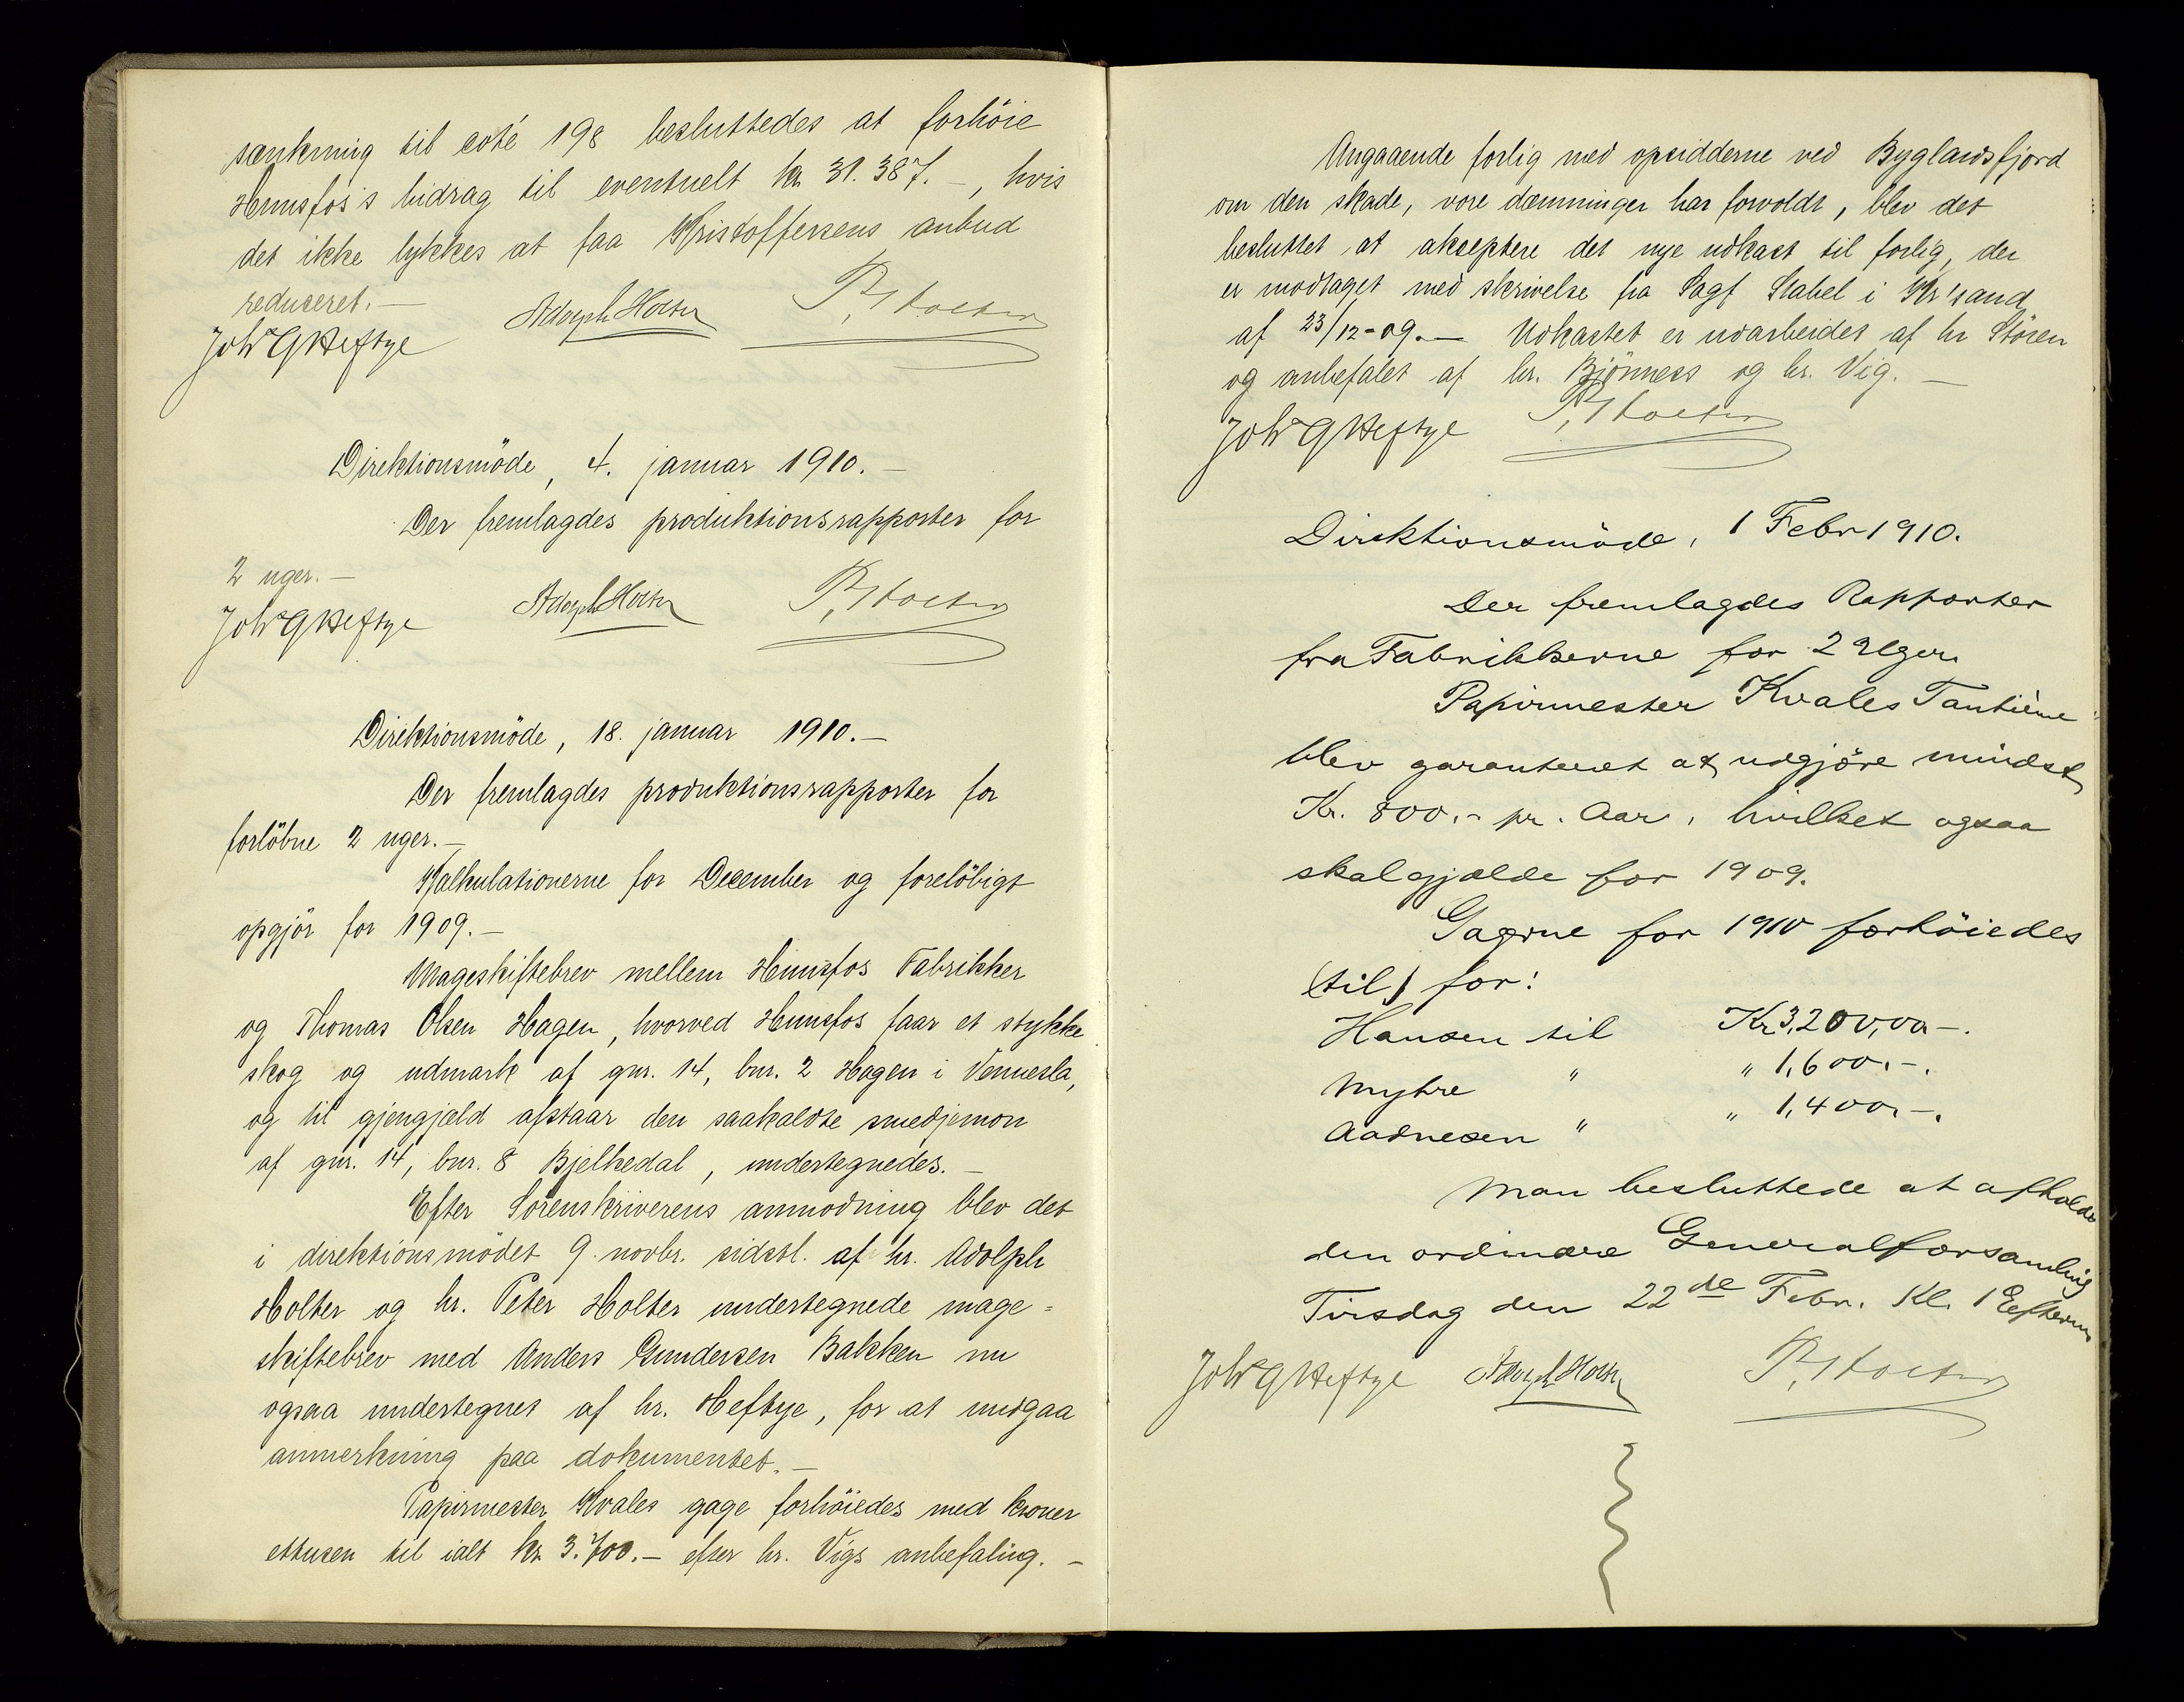 sænkning til coté 198 besluttedes at forhöie
Hunsfos's bidrag til eventuelt kr. 31.387.–, hvis
det ikke lykkes at faa Kristoffersens anbud
reduseret.–
Joh's G Heftye Adolph Holter P. Holter
Direktionsmöde, 4. januar 1910.–
Der fremlagdes produktionsrapporter for
2 uger.–
Joh's G Heftye Adolph Holter P. Holter
Direktionsmöde, 18. januar 1910.–
Der fremlagdes produktionsrapporter for
forlöbne 2 uger.–
Kalkulationerne for December og foreløbigt
opgjör for 1909.–
Mageskiftebrev mellem Hunsfos Fabrikker
og Thomas Olsen Hagen, hvorved Hunsfos faar et stykke
skog og udmark af gnr. 14, bnr. 2 Hagen i Vennesla,
og til gjengjæld afstaar den saakaldte smedjemon
af gnr. 14, bnr. 8 Bjelkedal, undertegnedes.–
Efter Sorenskriverens anmodning blev det
i direktionsmödet 9. novbr. sidstl. af hr. Adolph
Holter og hr. Peter Holter undertegnede mage=
skiftebrev med Anders Gundersen Bakken nu
ogsaa undertegnet af hr. Heftye, for at undgaa
anmerkning paa dokumentet.–
Papirmester Kvales gage forhöiedes med kroner
ettusen til ialt kr. 3.700.– efter hr. Vigs anbefaling.–
Angaaende forlig med opsidderne ved Byglandsfjord
om den skade, vore dæmninger har forvoldt, blev det
besluttet at akseptere det nye udkast til forlig, der
er modtaget med skrivelse fra Sagf Stabel i Kr'sand
af 23/12-09.– Udkastet er udarbeidet af hr Stören
og anbefalet af hr. Bjönness og hr. Vig.–
Joh's G Heftye P. Holter
Direktionsmöde, 1 Febr 1910.
Der fremlagdes Rapporter
fra Fabrikkerne for 2 Uger.
Papirmester Kvales Tantième
blev garanteret at udgjöre mindst
Kr. 800.- pr. Aar, hvilket ogsaa
skal gjælde for 1909.
Gagerne for 1910 forhöiedes
(til) for:
Hansen til Kr 3,200,00–.
Myhre " " 1,600.–.
Aadnesen " " 1,400.–.
Man besluttede at afholde
den ordinære Generalforsamling
Tirsdag den 22de Febr. Kl. 1 Efterm
Joh's G Heftye Adolph Holter P. Holter